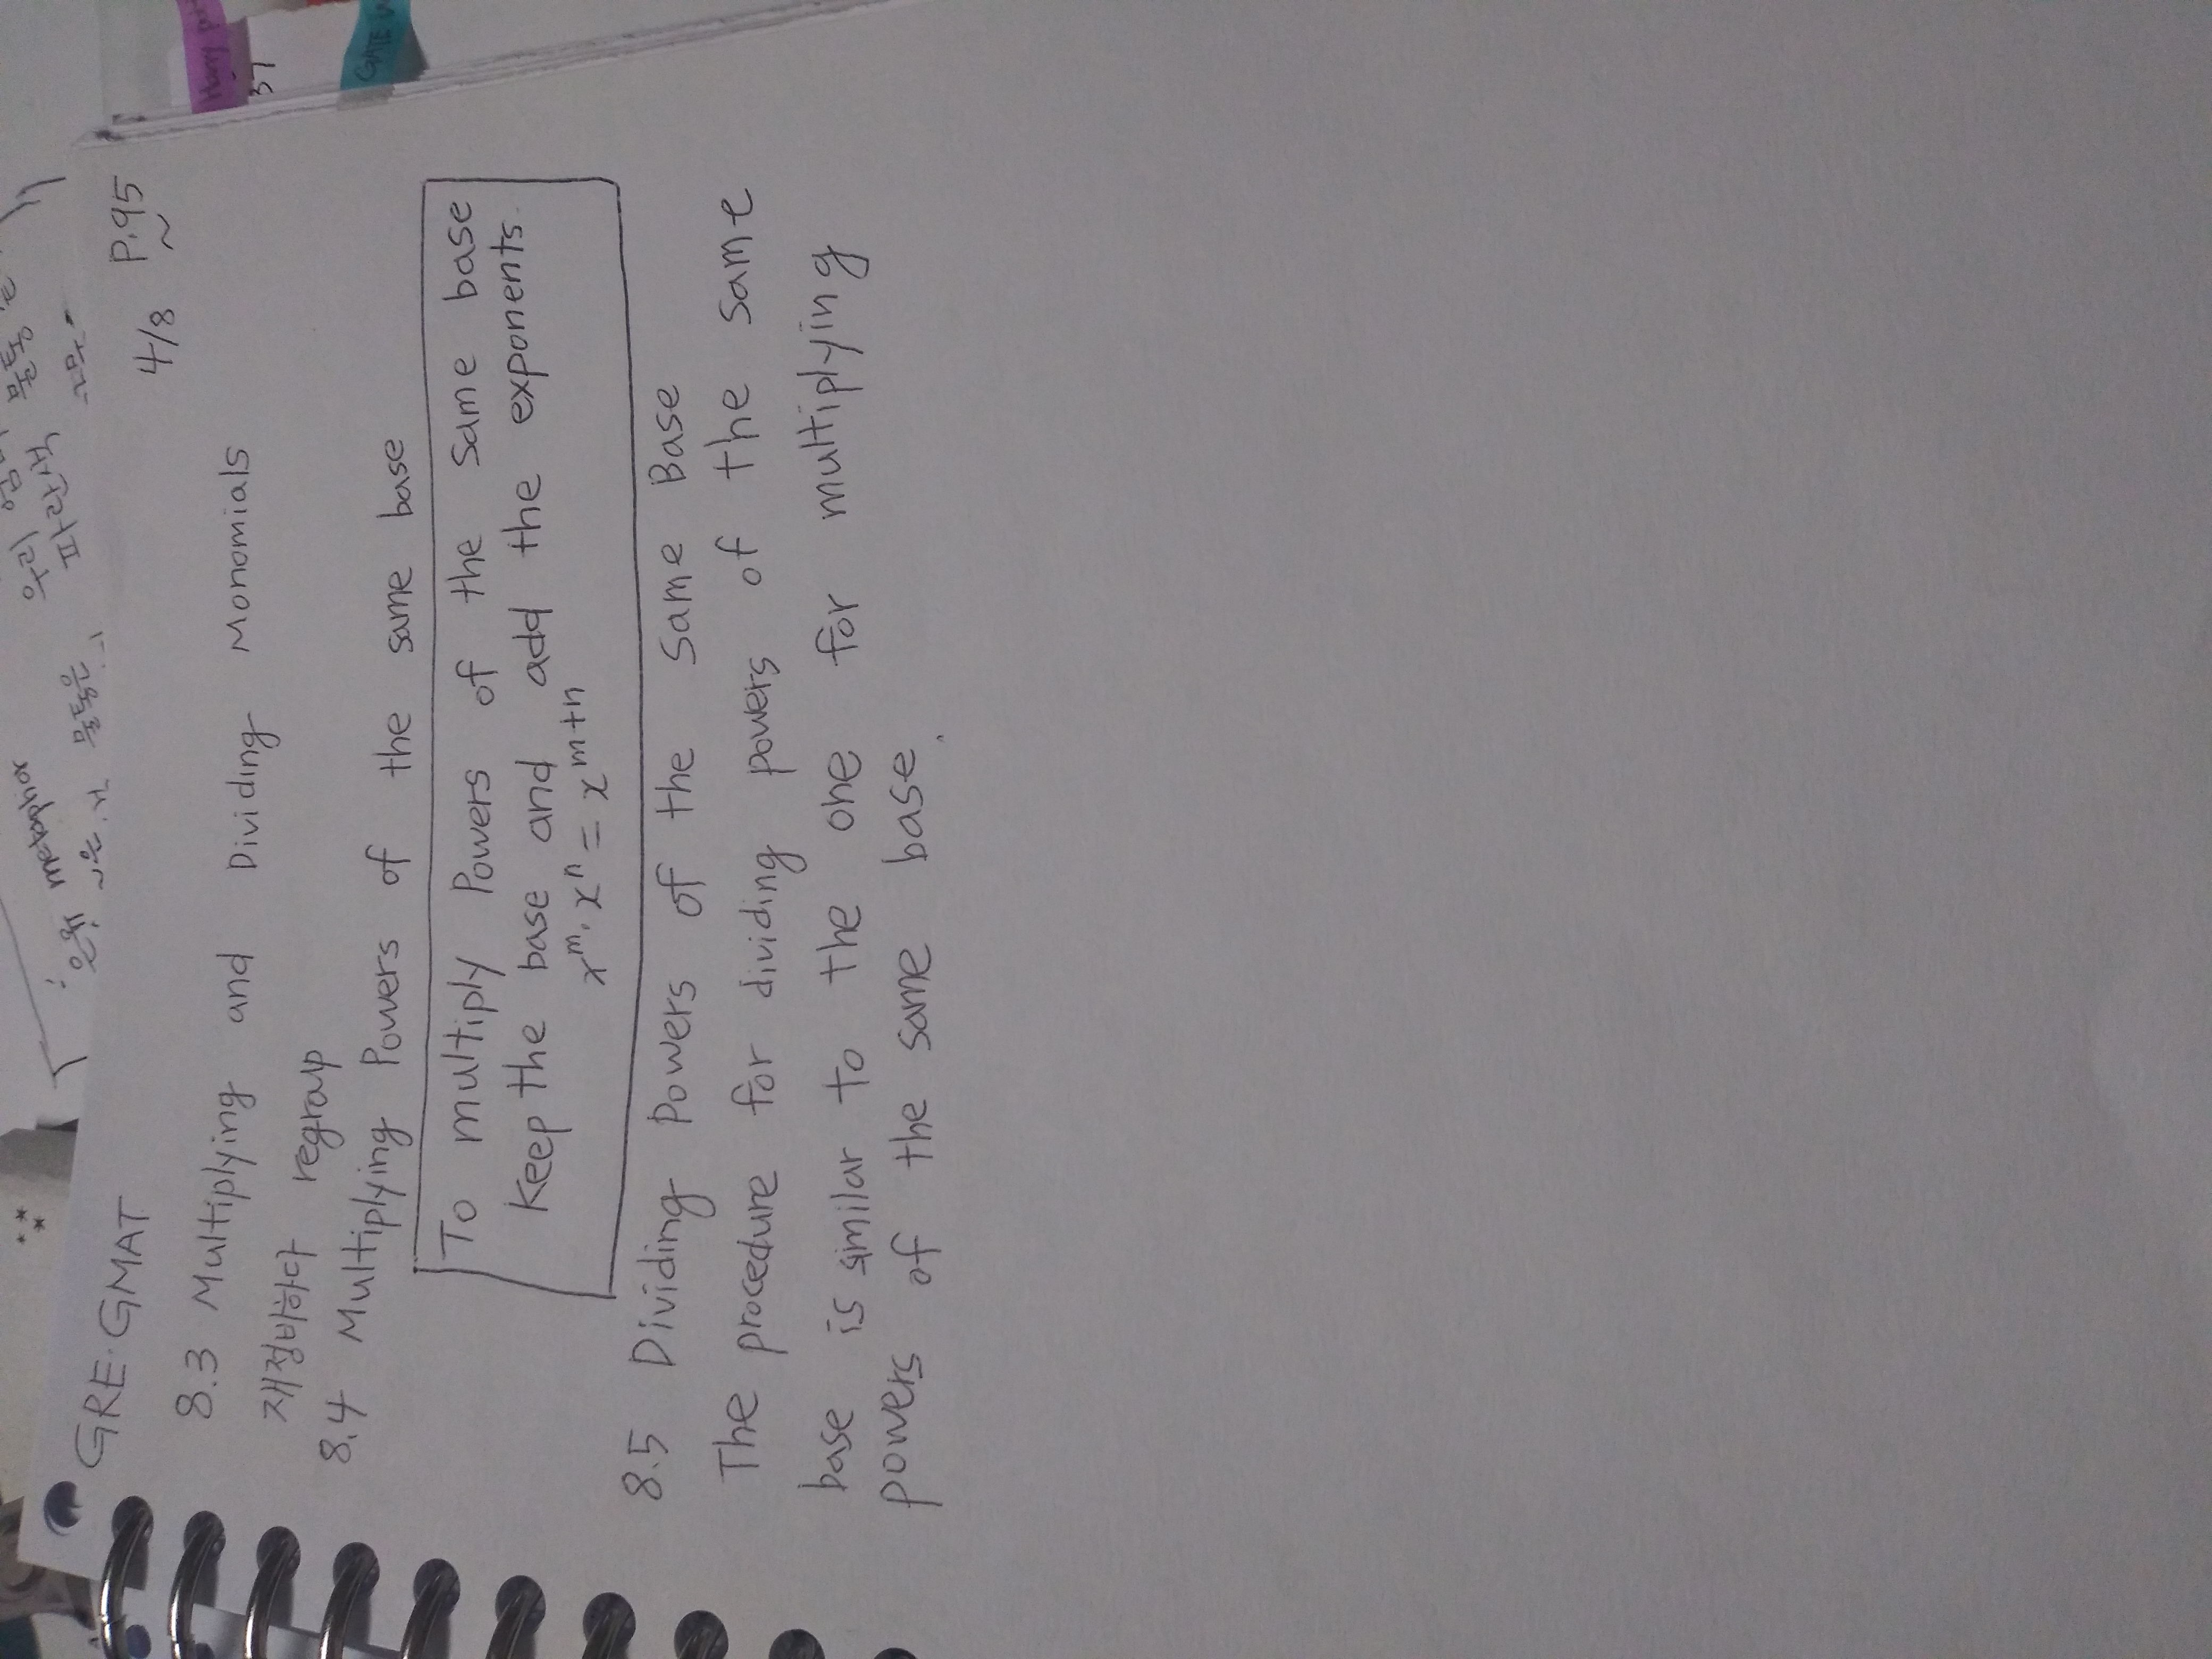 GRE·GMAT
4/8 P.95~
8.3 Multiplying and Dividing Monomials
재정비하다 regroup
8.4 Multiplying Powers of the same base
To multiply Powers of the Same base
keep the base and add the exponents.
xᵐ·xⁿ = xᵐ⁺ⁿ
8.5 Dividing Powers of the Same Base
The procedure for dividing powers of the same
base is similar to the one for multiplying
powers of the same base.
metaphor
우리
파란색
물통은
37